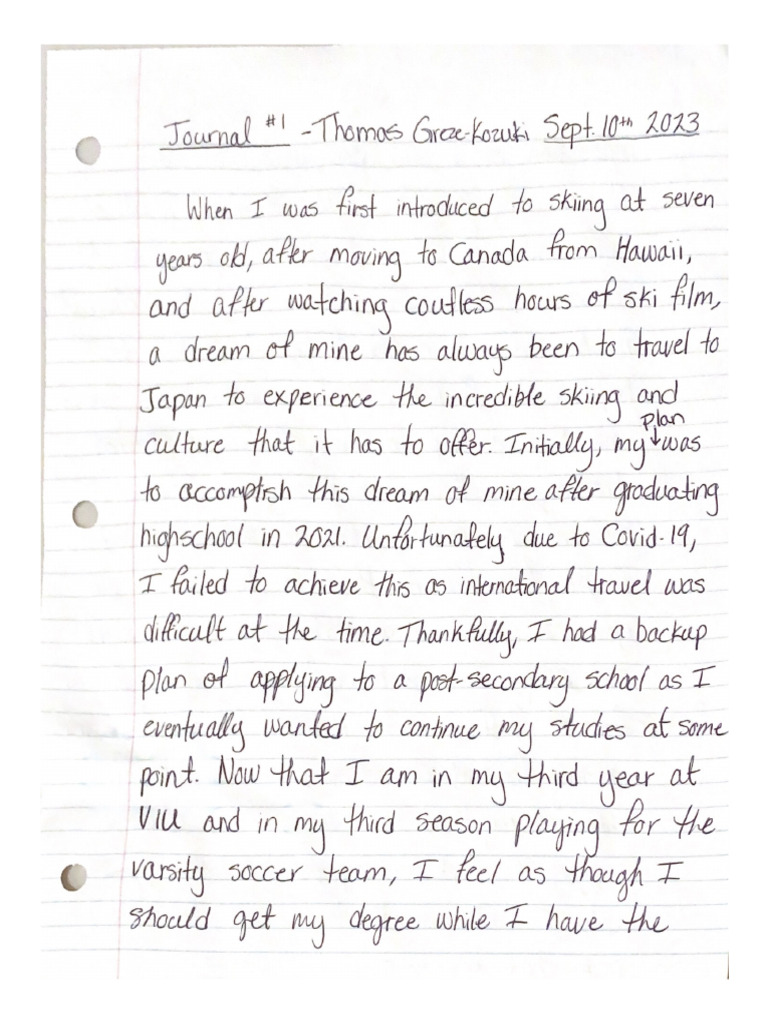 Journal #1 - Thomas Groze-Kozuki Sept. 10th 2023
When I was first introduced to skiing at seven
years old, after moving to Canada from Hawaii,
and after watching coutless hours of ski film,
a dream of mine has always been to travel to
Japan to experience the incredible skiing and
plan
culture that it has to offer. Initially, my ↓ was
to accomplish this dream of mine after graduating
highschool in 2021. Unfortunately due to Covid-19,
I failed to achieve this as international travel was
difficult at the time. Thankfully, I had a backup
plan of applying to a post-secondary school as I
eventually wanted to continue my studies at some
point. Now that I am in my third year at
VIU and in my third season playing for the
varsity soccer team, I feel as though I
should get my degree while I have the